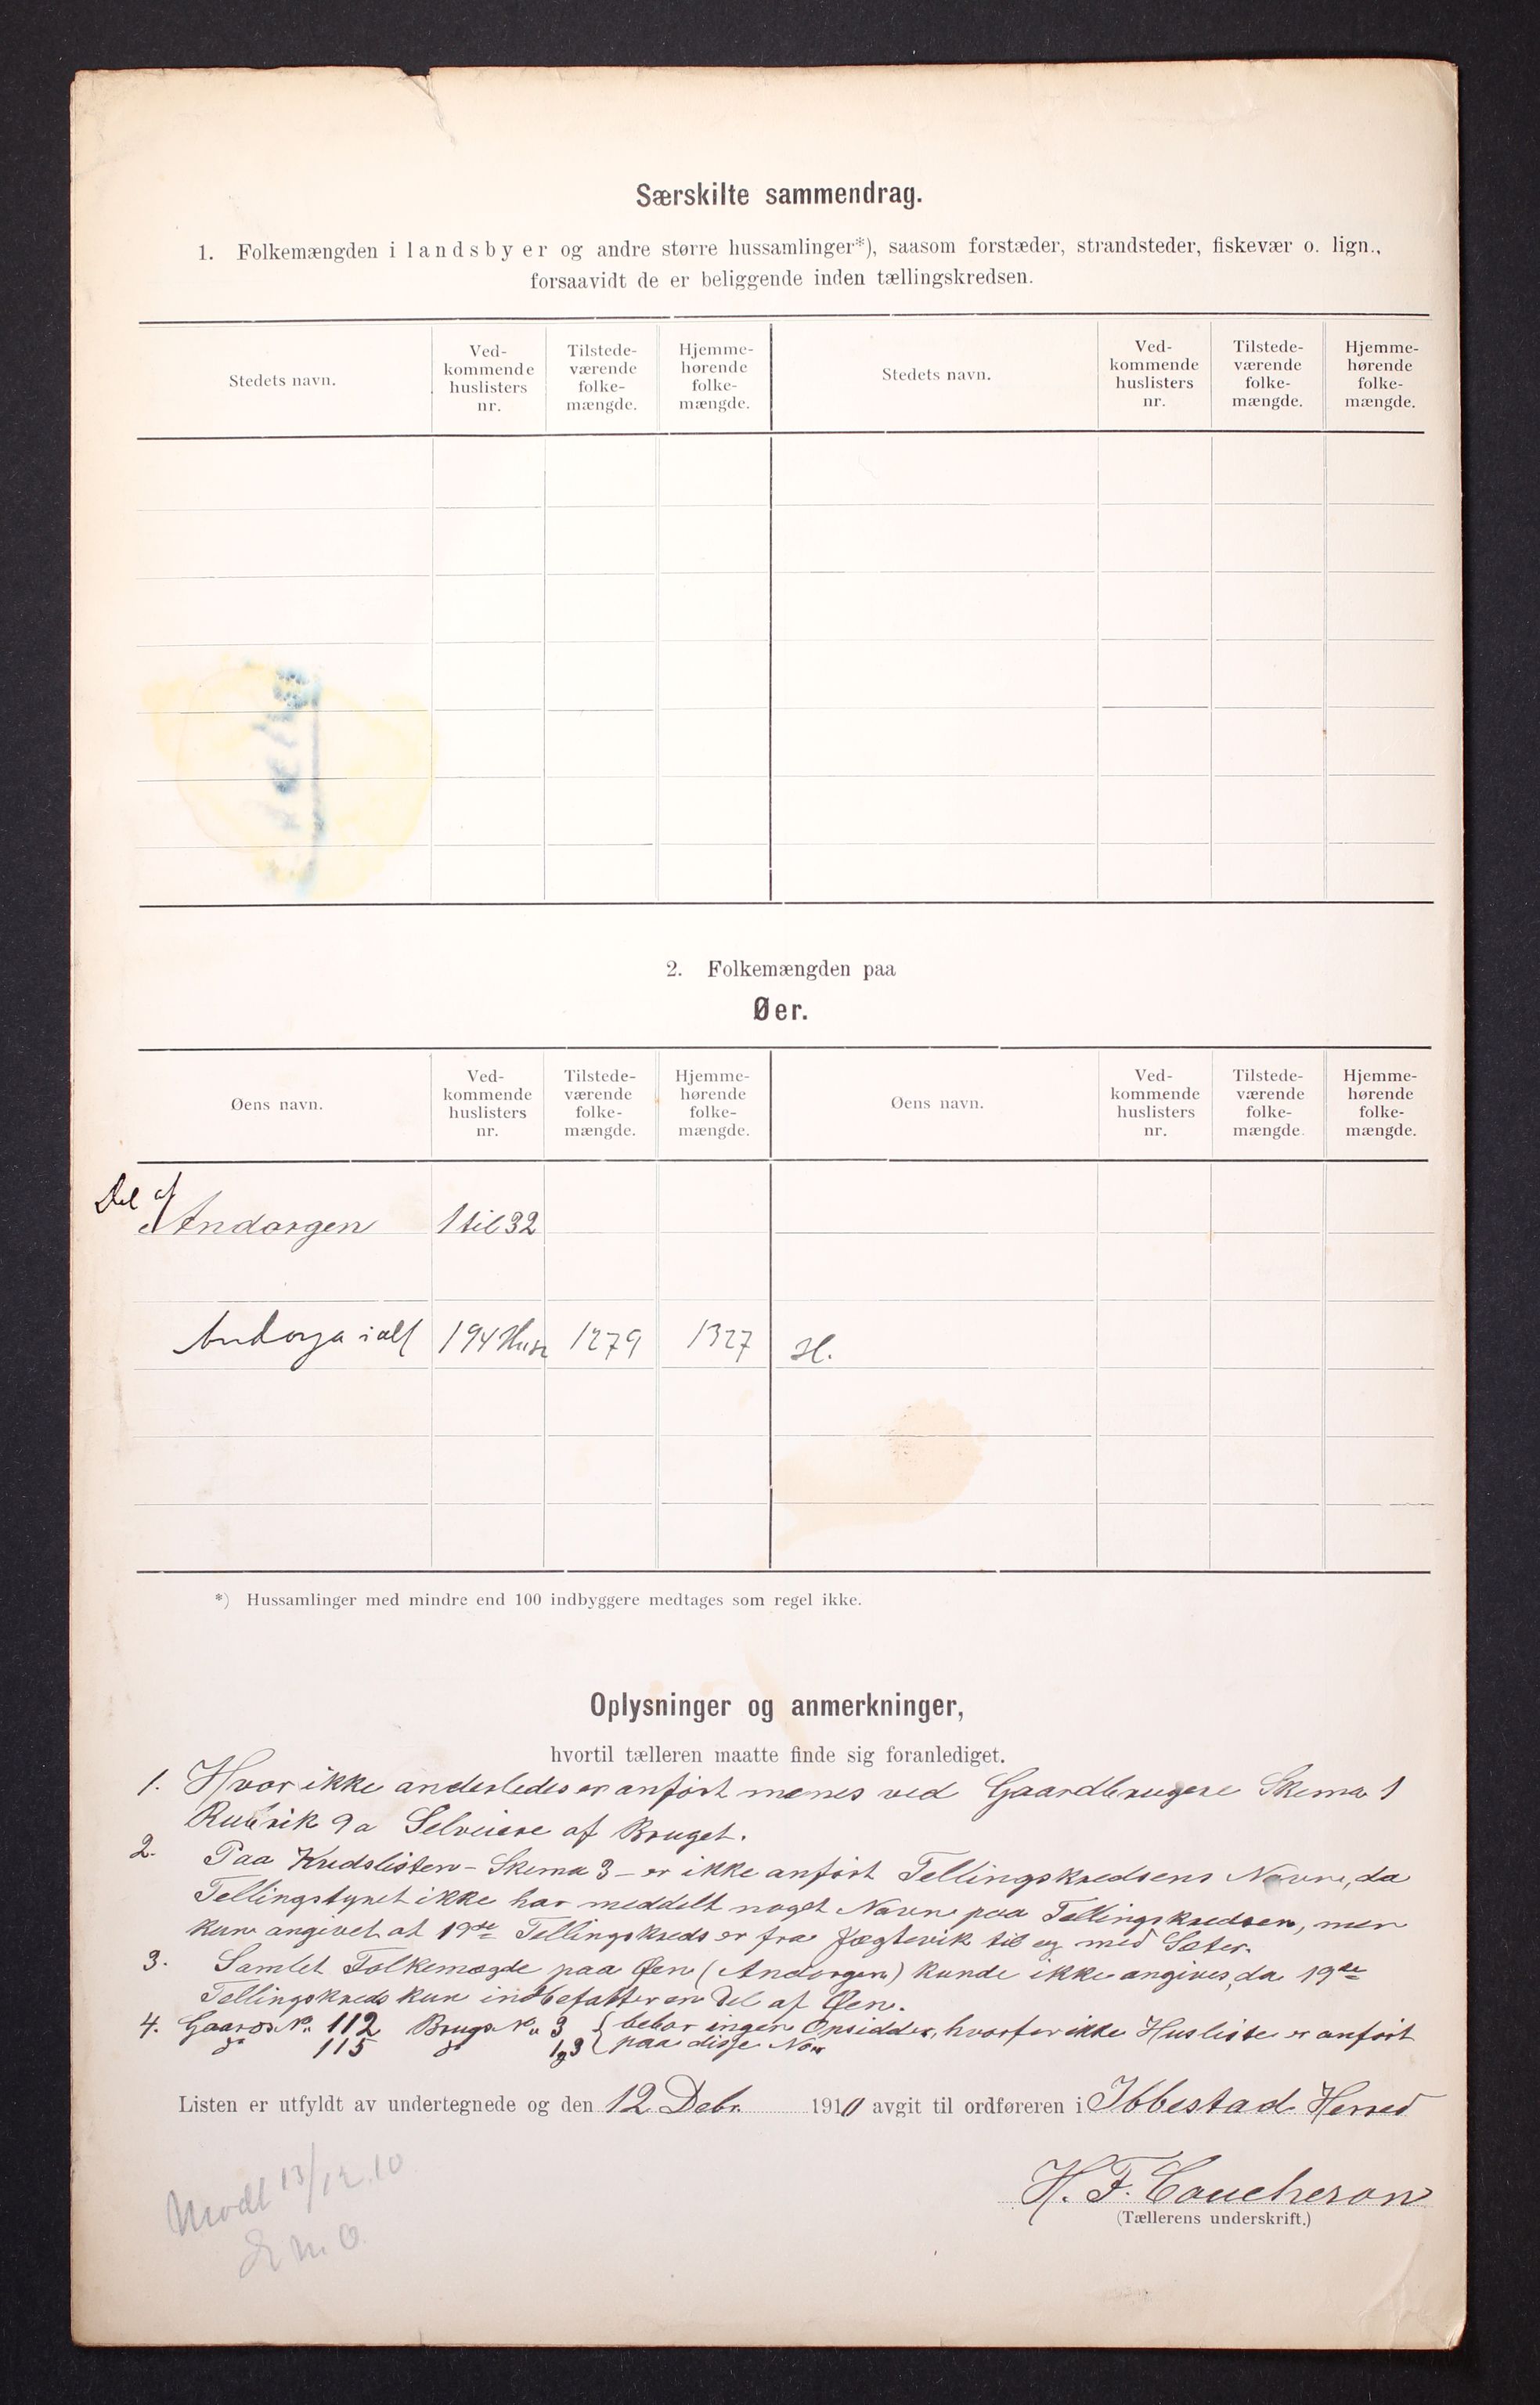 Særskilte sammendrag.
1. Folkemængden i landsbyer og andre større hussamlinger*), saasom forstæder, strandsteder, fiskevær o. lign.,
forsaavidt de er beliggende inden tællingskredsen.
Stedets navn.
Ved-
kommende
huslisters
nr.
Tilstede-
værende
folke-
mængde.
Hjemme-
hørende
folke-
mængde.
Stedets navn.
Ved-
kommende
huslisters
nr.
Tilstede-
værende
folke-
mængde.
Hjemme-
hørende
folke-
mængde.
2. Folkemængden paa
Øer.
Øens navn.
Ved-
kommende
huslisters
nr.
Tilstede-
værende
folke-
mængde.
Hjemme-
hørende
folke-
mængde.
Øens navn.
Ved-
kommende
huslisters
nr.
Tilstede-
værende
folke-
mængde.
Hjemme-
hørende
folke-
mængde.
Del af
Andorgen 1 til 32
Andorja i alt 194 Huse 1279 1327 H.
*) Hussamlinger med mindre end 100 indbyggere medtages som regel ikke.
Oplysninger og anmerkninger,
hvortil tælleren maatte finde sig foranlediget.
1. Hvor ikke anderledes er anført menes ved Gaardbrugere Skema 1
Rubrik 9a Selveiere af Bruget.
2. Paa Kredslisten - Skema 3 - er ikke anført Tellingskredsens Navn, da
Tellingstyret ikke har meddelt noget Navn paa Tellingskredsen, men
kun angivet at 19de Tellingskreds er fra Jægtevik til og med Sæter.
3. Samlet Folkemægde paa Øen (Andorgen) kunde ikke angives, da 19de
Tellingskreds kun indbefatter en Del af Øen.
4. Gaards No. 112 Brugs No. 3 { bebor ingen Opsidder, hvorfor ikke Husliste er anført
do 115 do 1 og 3 { paa disse No.
Listen er utfyldt av undertegnede og den 12 Debr. 1910 avgit til ordføreren i Ibbestad Herred
H. F. Coucheron
(Tællerens underskrift.)
Modt 13/12.10